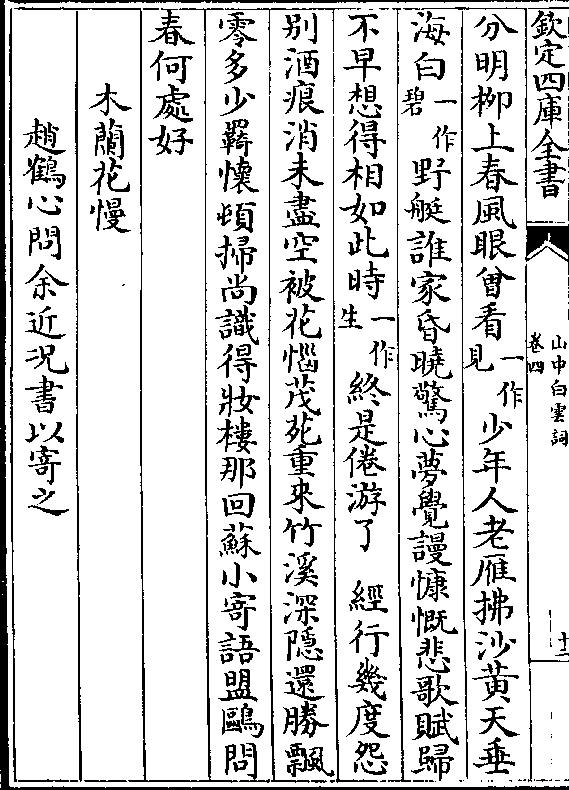 欽定四庫全書
山中白雲詞
卷四
十三
分明栁上春風眼曾看一作見少年人老雁拂沙黄天垂
海白一作碧野艇誰家昏曉驚心夢覺謾慷慨悲歌賦歸
不早想得相如此時一作生終是倦游了　經行幾度怨
别酒痕消未盡空被花惱茂苑重來竹溪深隱還勝飄
零多少羇懷頓掃尚識得妝樓那回蘇小寄語盟鷗問
春何處好
木蘭花慢
趙鶴心問余近况書以寄之